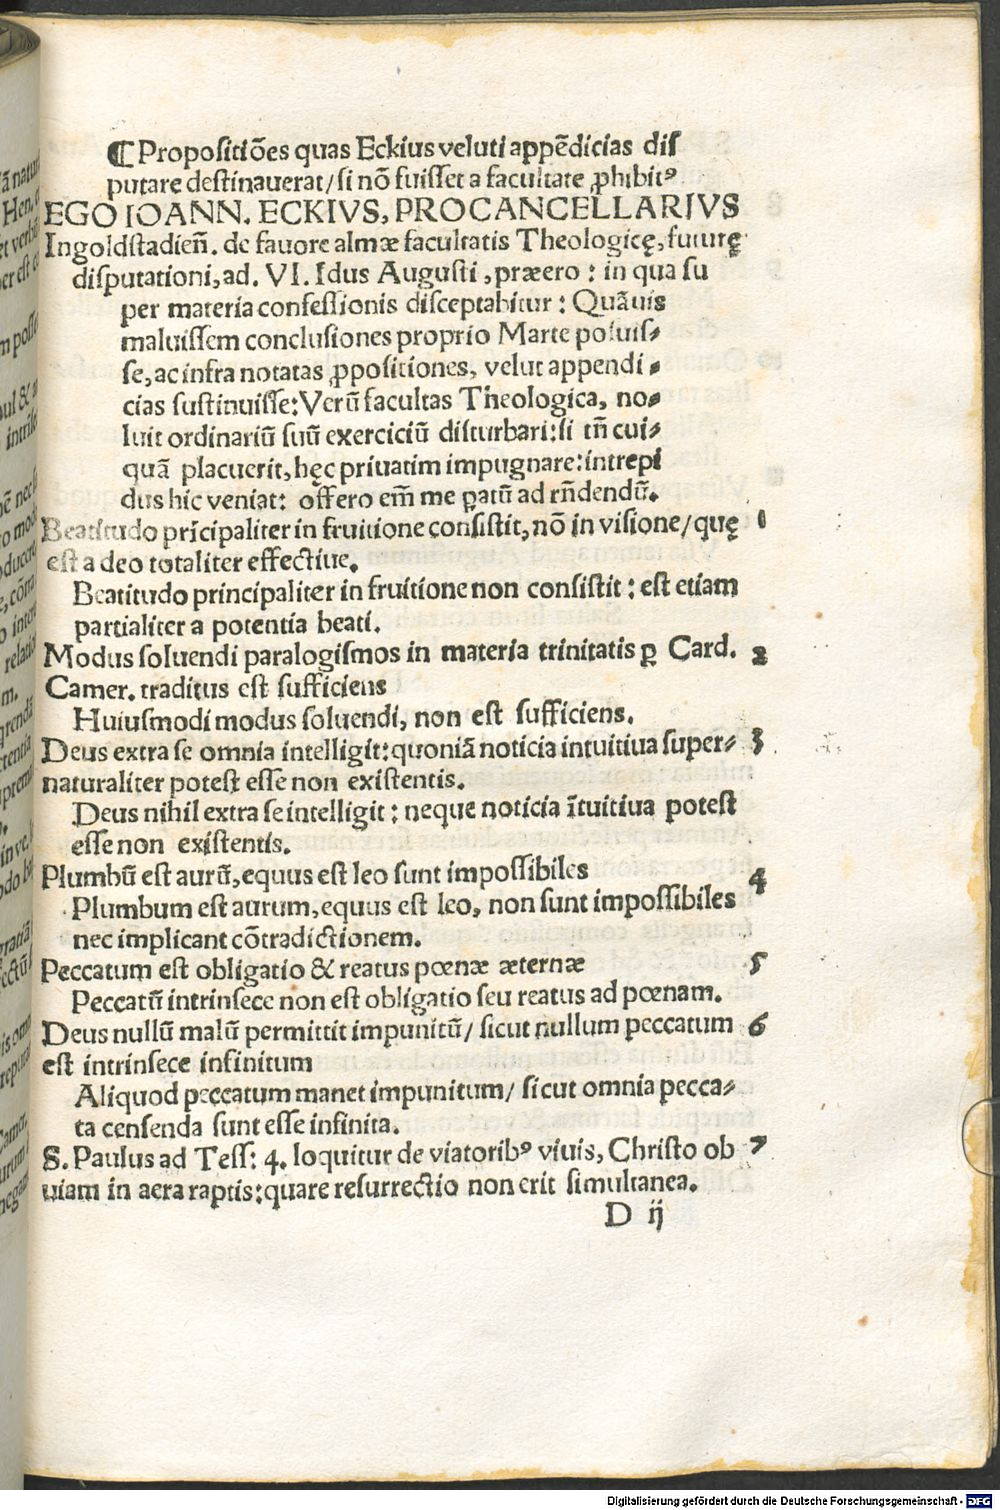 ¶ Propositiões quas Eckius veluti appẽdicias dis
putare destinauerat/ si nõ fuisset a facultate ꝓhibitꝰ
EGO IOANN. ECKIVS, PROCANCELLARIVS
Ingoldstadień. de fauore almæ facultatis Theologicę, futurę
disputationi, ad. VI. Idus Augusti, præero : in qua su
per materia confessionis disceptabitur : Quãuis
maluissem conclusiones proprio Marte posuis-
se, ac infra notatas ꝓpositiones, velut appendi-
cias sustinuisse: Verũ facultas Theologica, no-
luit ordinariũ suũ exerciciũ disturbari: si tñ cui-
quã placuerit, hęc priuatim impugnare: intrepi
dus hic veniat: offero em̃ me ꝑatũ ad rñdendũ.
Beatitudo prĩcipaliter in fruitione consistit, nõ in visione/ quę 1
est a deo totaliter effectiue.
Beatitudo principaliter in fruitione non consistit : est etiam
partialiter a potentia beati.
Modus soluendi paralogismos in materia trinitatis ꝑ Card. 2
Camer. traditus est sufficiens
Huiusmodi modus soluendi, non est sufficiens.
Deus extra se omnia intelligit: quoniã noticia intuitiua super- 3
naturaliter potest esse non existentis.
Deus nihil extra se intelligit : neque noticia ĩtuitiua potest
esse non existentis.
Plumbũ est aurũ, equus est leo sunt impossibiles 4
Plumbum est aurum, equus est leo, non sunt impossibiles
nec implicant cõtradictionem.
Peccatum est obligatio & reatus pœnæ æternæ 5
Peccatũ intrinsece non est obligatio seu reatus ad pœnam.
Deus nullũ malũ permittit impunitũ/ sicut nullum peccatum 6
est intrinsece infinitum
Aliquod peccatum manet impunitum/ sicut omnia pecca-
ta censenda sunt esse infinita.
S. Paulus ad Tess: 4. loquitur de viatoribꝰ viuis, Christo ob 7
uiam in aera raptis: quare resurrectio non erit simultanea.
D ij
Digitalisierung gefördert durch die Deutsche Forschungsgemeinschaft - DFG